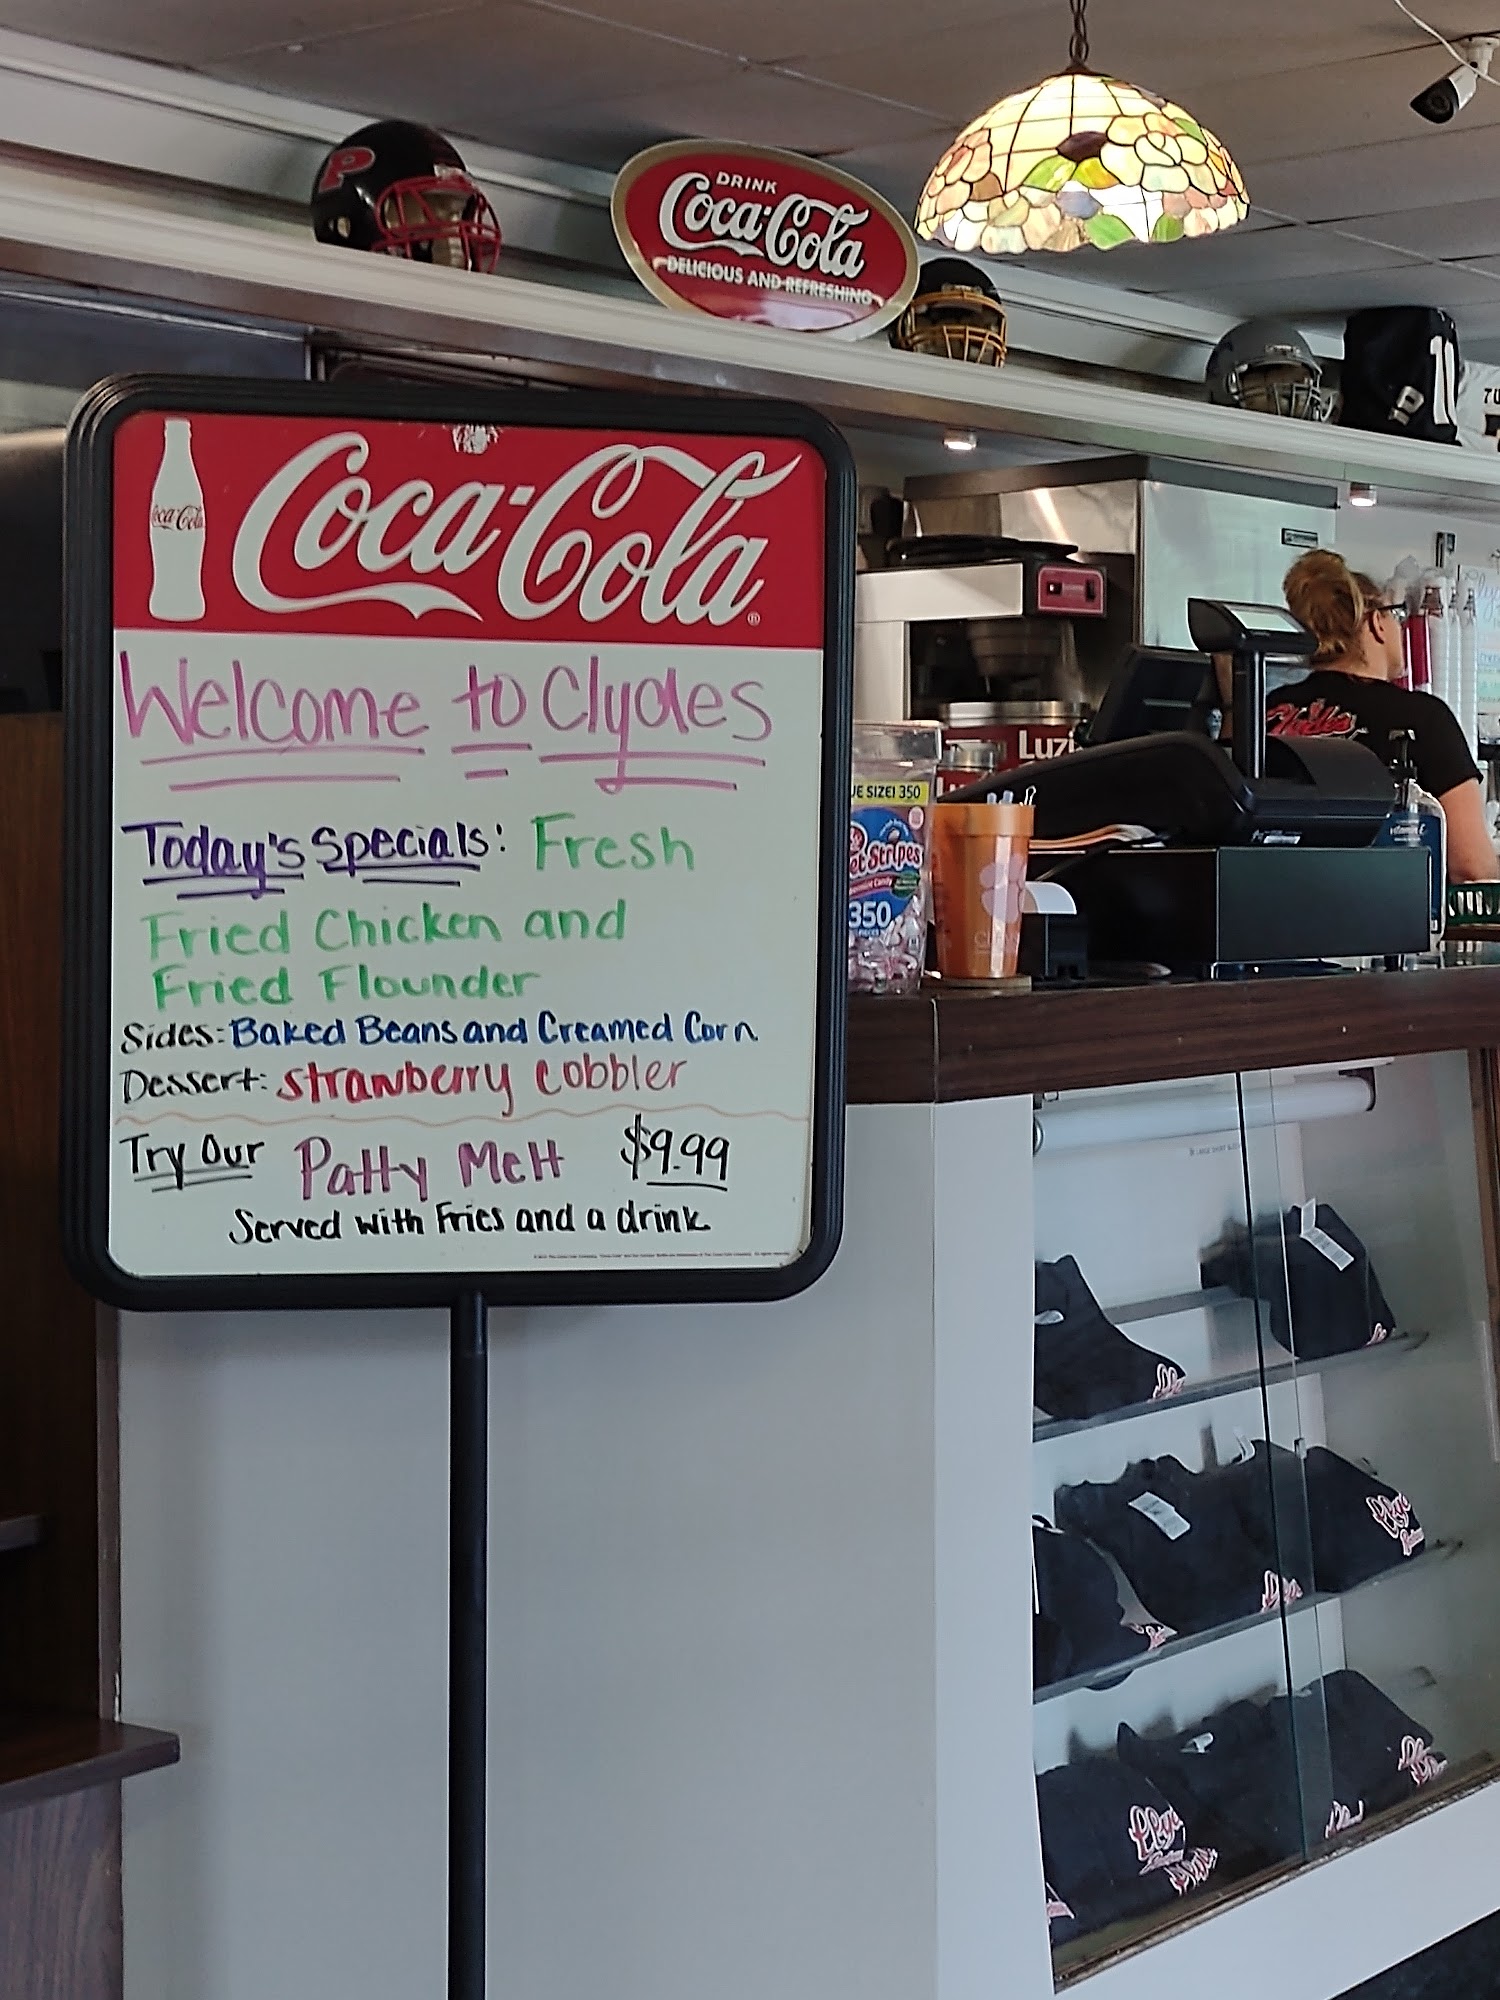 P
DRINK
Coca-Cola
DELICIOUS AND REFRESHING
10
Coca-Cola
Coca-Cola
Welcome to Clydes
Today's Specials: Fresh
Fried Chicken and
Fried Flounder
Sides: Baked Beans and Creamed Corn
Dessert: Strawberry Cobbler
Try Our Patty Melt $9.99
Served with Fries and a drink
Luzi
UE SIZE! 350
et Stripes
350
vitamin E